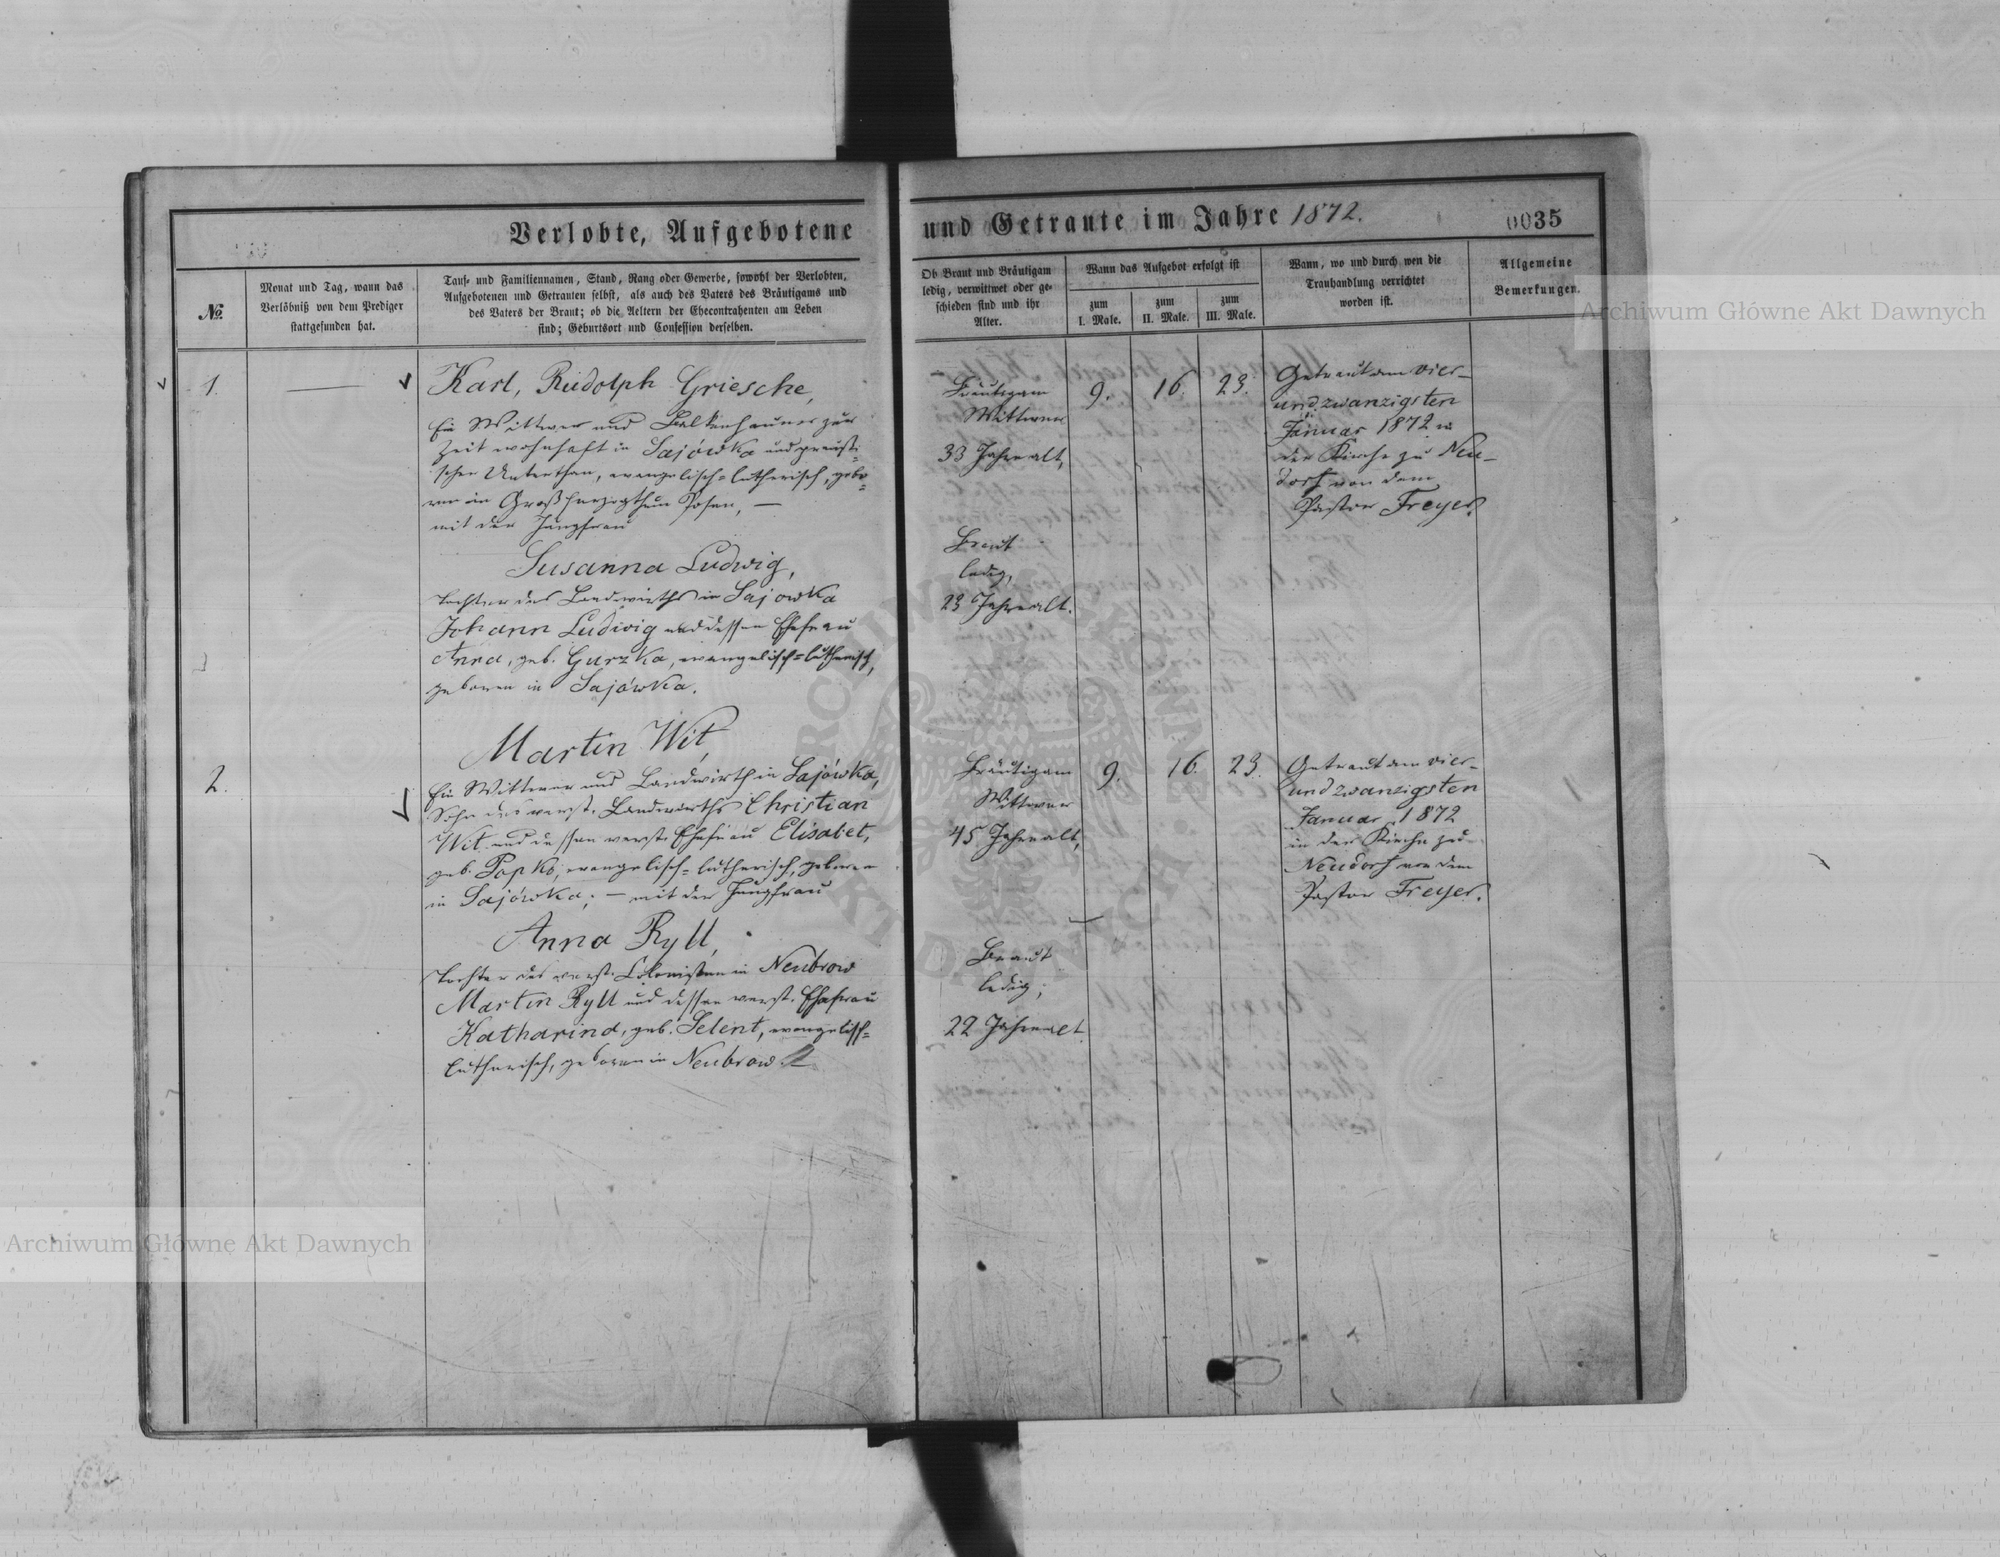 Verlobte, Aufgebotene und Getraute im Jahre 1872.
0035
№.
Monat und Tag, wann das
Verlöbniß von dem Prediger
stattgefunden hat.
Tauf- und Familiennamen, Stand, Rang oder Gewerbe, sowohl der Verlobten,
Aufgebotenen und Getrauten selbst, als auch des Vaters des Bräutigams und
des Vaters der Braut; ob die Aeltern der Ehecontrahenten am Leben
sind; Geburtsort und Confession derselben.
Ob Braut und Bräutigam
ledig, verwittwet oder ge-
schieden sind und ihr
Alter.
Wann das Aufgebot erfolgt ist
zum
I. Male.
zum
II. Male.
zum
III. Male.
Wann, wo und durch wen die
Trauhandlung verrichtet
worden ist.
Allgemeine
Bemerkungen.
1.
Karl, Rudolph Griesche,
Ein Wittwer und Balkenhauer zur
Zeit wohnhaft in Sajówka und preußi-
scher Unterthan, evangelisch-lutherisch, gebo-
ren im Großherzogthum Posen, —
mit der Jungfrau
Susanna Ludwig,
Tochter des Landwirths in Sajowka
Johann Ludwig und dessen Ehefrau
Anna, geb. Gurzka, evangelisch-lutherisch,
geboren in Sajówka.
Bräutigam
Wittwer
33 Jahre alt,
Braut
ledig,
23 Jahre alt.
9.
16.
23.
Getraut am vier-
und zwanzigsten
Januar 1872 in
der Kirche zu Neu-
dorf von dem
Pastor Freyer.
2.
Martin Wit,
Ein Wittwer und Landwirth in Sajówka,
Sohn des verst. Landwirths Christian
Wit und dessen verst. Ehefrau Elisabet,
geb. Popko, evangelisch-lutherisch, geboren
in Sajówka; — mit der Jungfrau
Anna Ryll,
Tochter des verst. Colonisten in Neubrow
Martin Ryll und dessen verst. Ehefrau
Katharina, geb. Selent, evangelisch-
lutherisch, geboren in Neubrow.
Bräutigam
Wittwer
45 Jahre alt,
Braut
ledig;
22 Jahre alt.
9.
16.
23.
Getraut am vier-
und zwanzigsten
Januar 1872
in der Kirche zu
Neudorf von dem
Pastor Freyer.
Archiwum Główne Akt Dawnych
Archiwum Główne Akt Dawnych